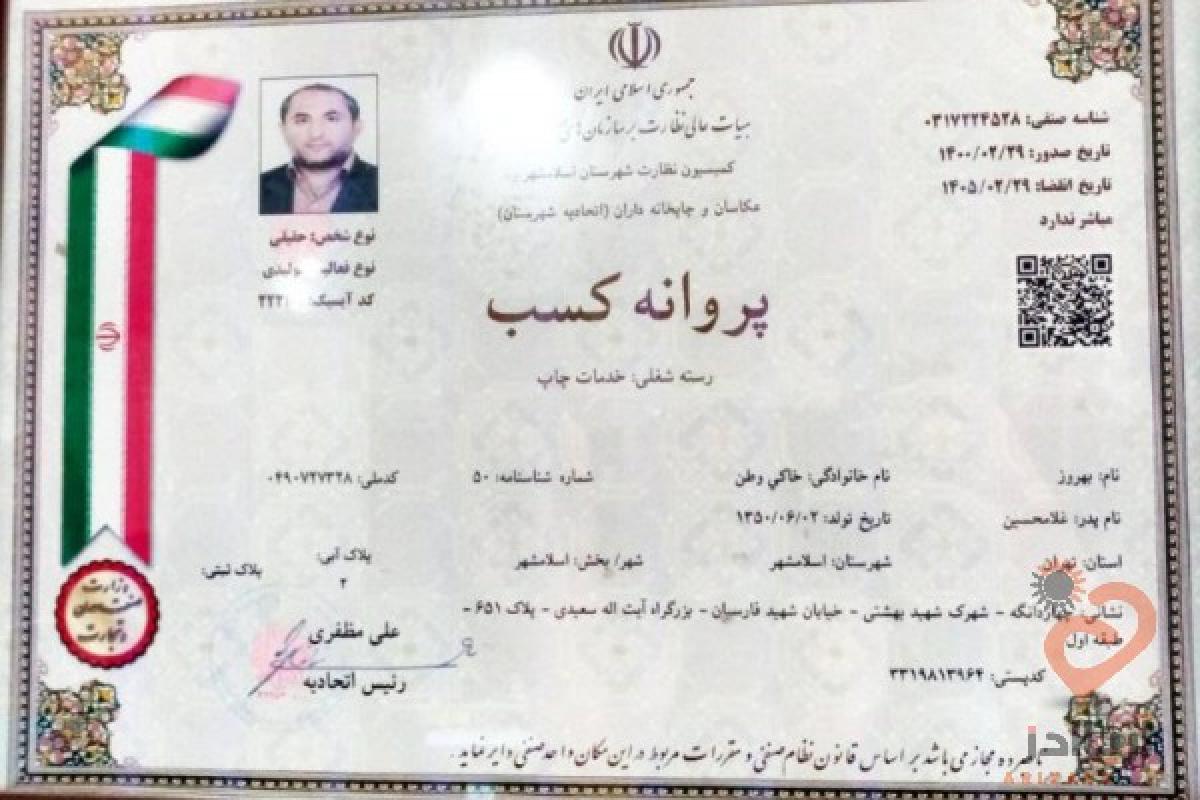 جمهوری اسلامی ایران
هیات عالی نظارت بر سازمان‌های
کمیسیون نظارت شهرستان اسلامشهر
عکاسان و چاپخانه داران (اتحادیه شهرستان)
شناسه صنفی: ۰۳۱۷۲۲۴۵۲۸
تاریخ صدور: ۱۴۰۰/۰۲/۲۹
تاریخ انقضا: ۱۴۰۵/۰۲/۲۹
مباشر ندارد
نوع شخص: حقیقی
نوع فعالیت تولیدی
کد آیسیک
پروانه کسب
رسته شغلی: خدمات چاپ
نام: بهروز نام خانوادگی: خاکی وطن شماره شناسنامه: ۵۰ کدملی: ۰۴۹۰۷۲۷۳۲۸
نام پدر: غلامحسین تاریخ تولد: ۱۳۵۰/۰۶/۰۲
استان: تهران شهرستان: اسلامشهر شهر/ بخش: اسلامشهر پلاک آبی: ۲ پلاک ثبتی:
نشانی: چهاردانگه - شهرک شهید بهشتی - خیابان شهید فارسیان - بزرگراه آیت اله سعیدی - پلاک ۶۵۱ -
طبقه اول
کدپستی: ۳۳۱۹۸۱۳۹۶۴
علی مظفری
رئیس اتحادیه
وزارت
صنعت معدن
و تجارت
نامبرده مجاز می باشد بر اساس قانون نظام صنفی و مقررات مربوط در این مکان واحد صنفی دایر نماید.